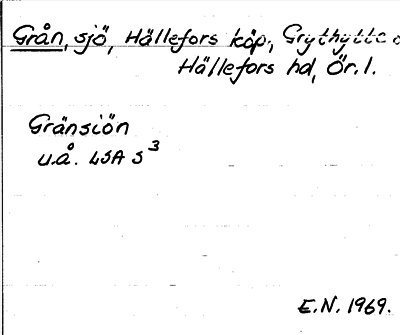 Grån, sjö, Hällefors köp., Grythytte o
Hällefors hd, Ör. l.
Gränsiön
u.å. LSA S³
E.N. 1969.